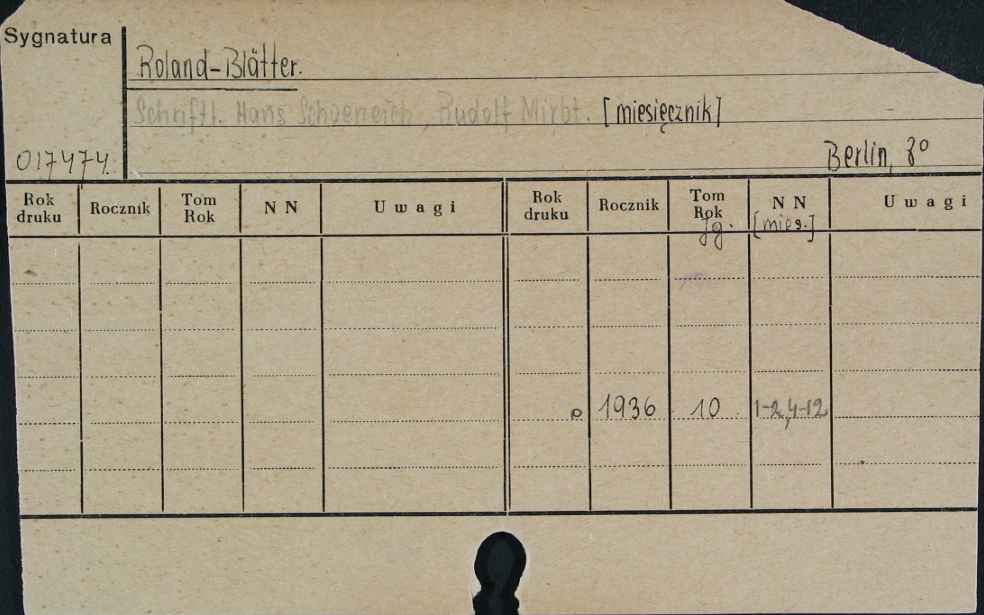 Sygnatura
Roland-Blätter.
Schriftl. Hans Schoeneich, Rudolf Mirbt. [miesięcznik]
017474. Berlin, 8°
Rok druku Rocznik Tom Rok N N Uwagi Rok druku Rocznik Tom Rok N N Uwagi
Jg. [mies.]
1936 10 1-2,4-12